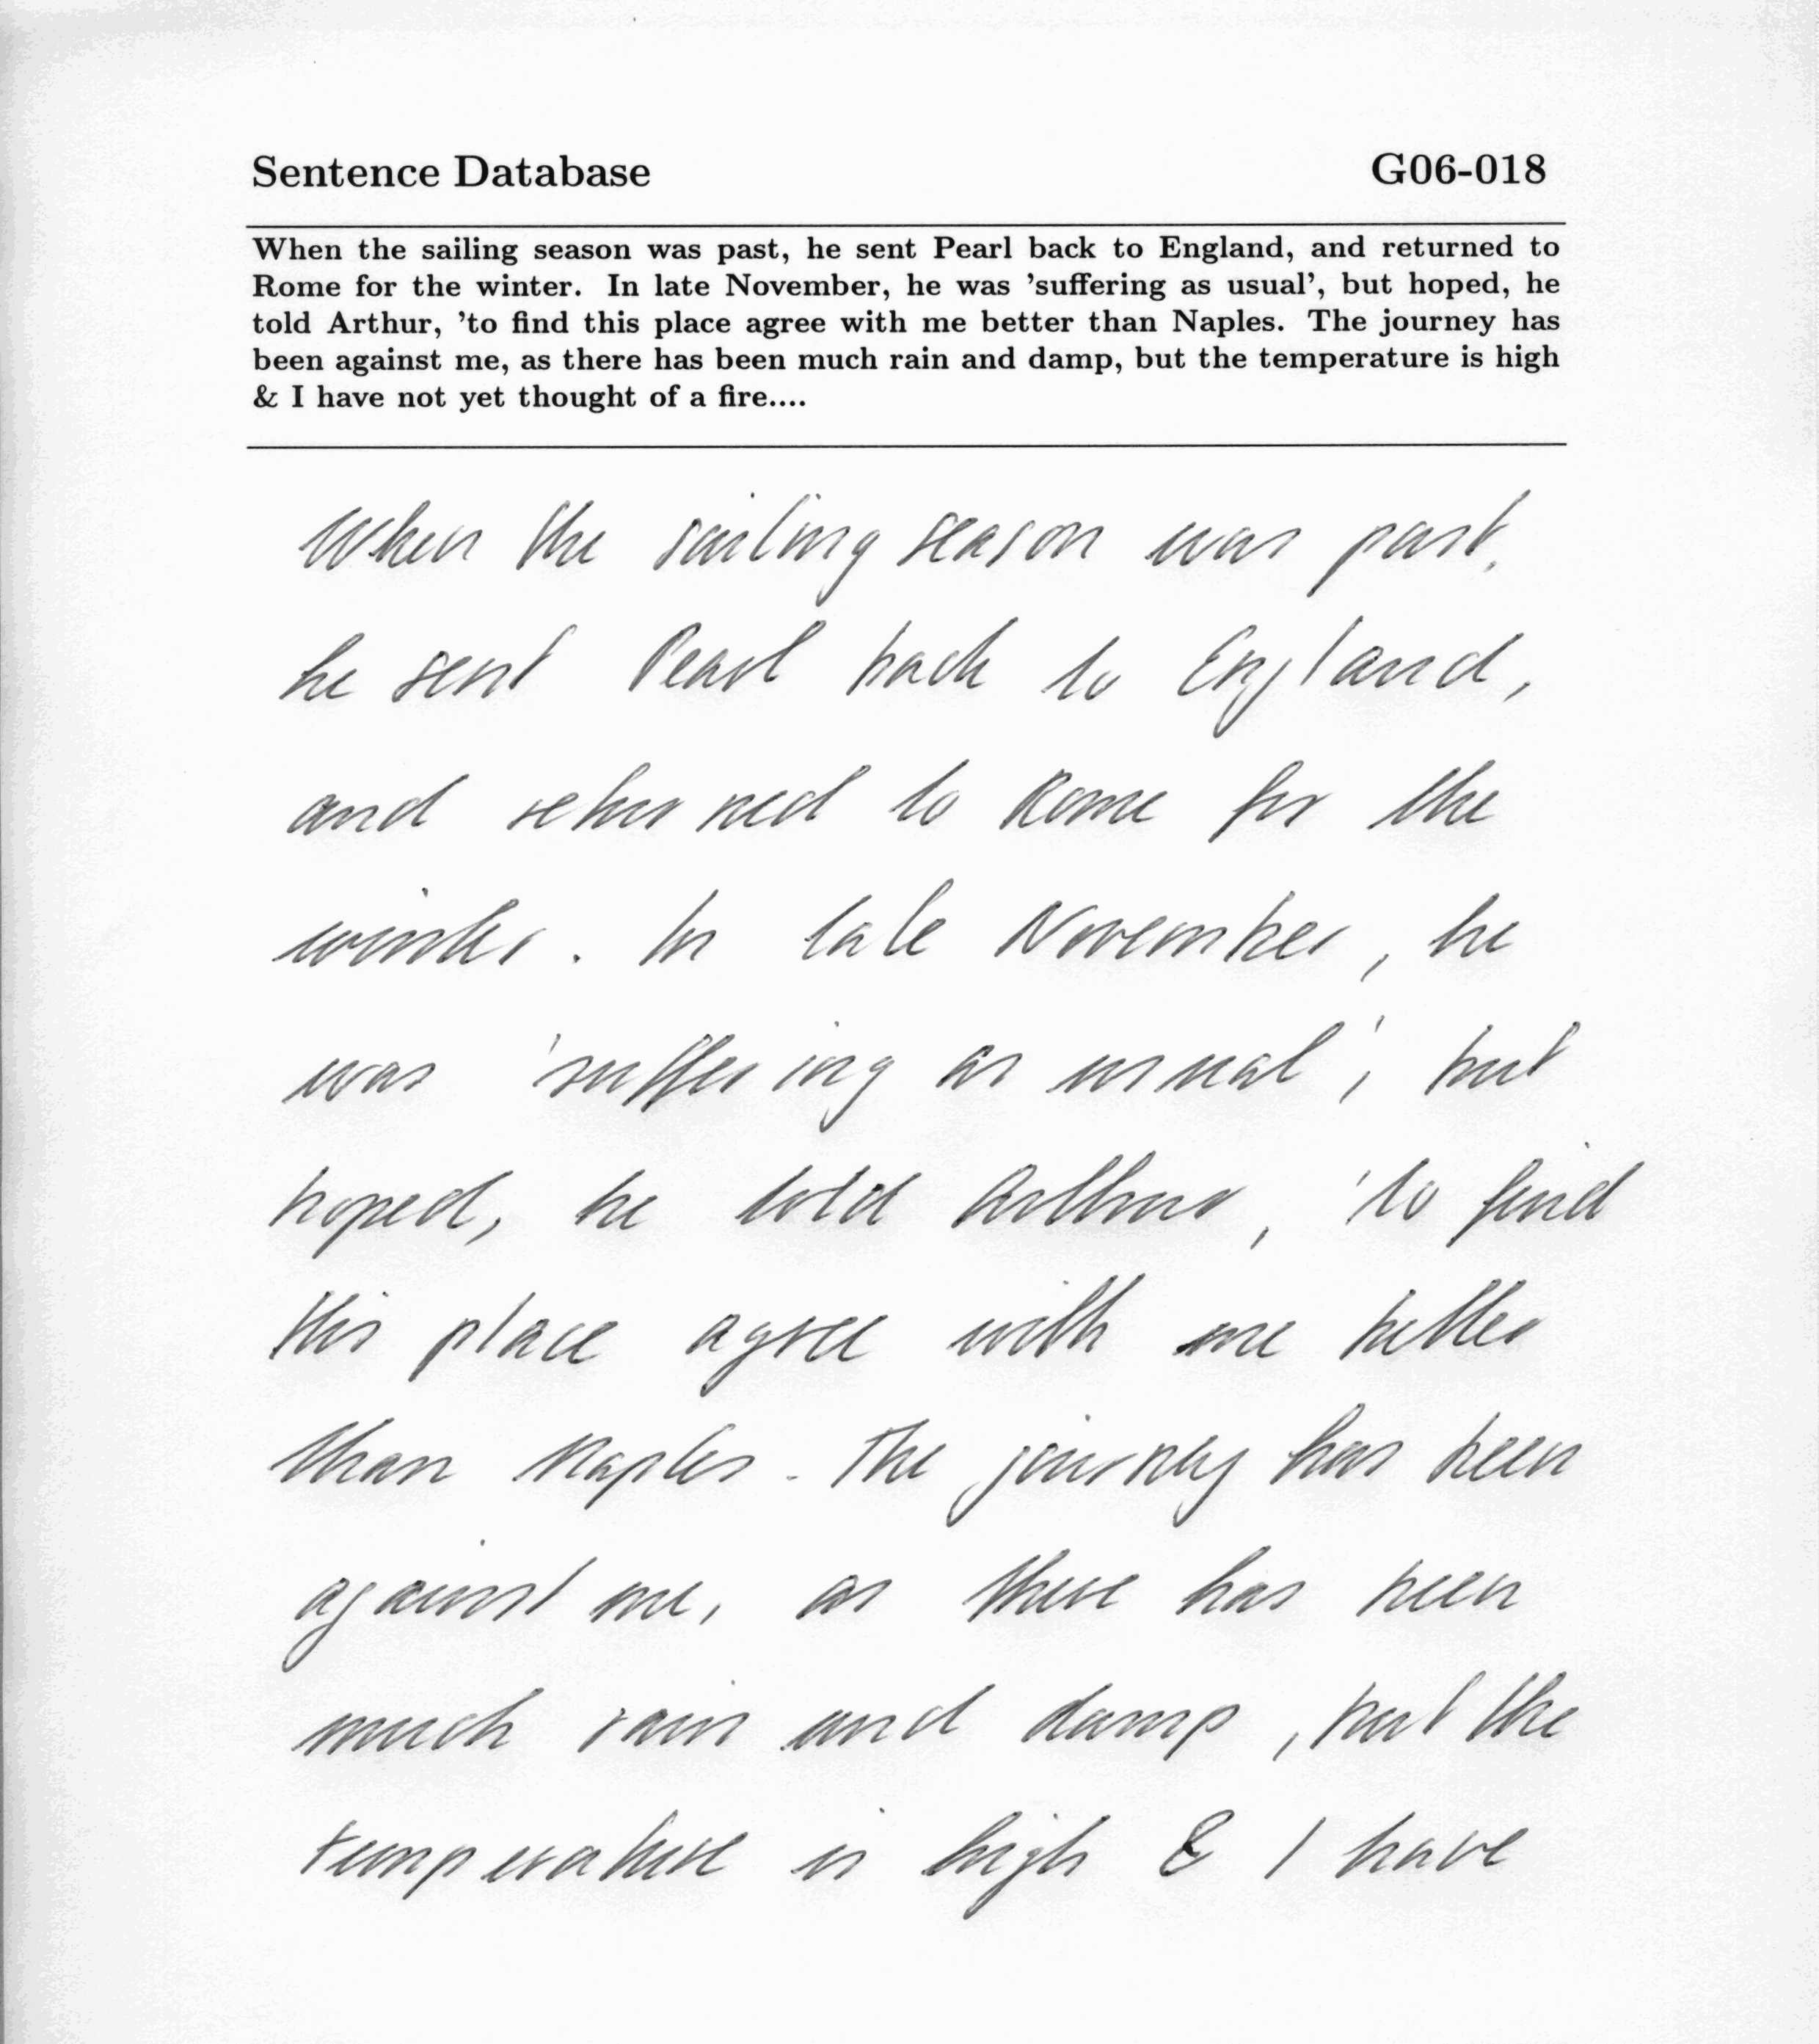 Sentence Database G06-018
When the sailing season was past, he sent Pearl back to England, and returned to
Rome for the winter. In late November, he was 'suffering as usual', but hoped, he
told Arthur, 'to find this place agree with me better than Naples. The journey has
been against me, as there has been much rain and damp, but the temperature is high
& I have not yet thought of a fire....
When the sailing season was past,
he sent Pearl back to England,
and returned to Rome for the
winter. In late November, he
was 'suffering as usual', but
hoped, he told Arthur, 'to find
this place agree with me better
than Naples. The journey has been
against me, as there has been
much rain and damp, but the
temperature is high & I have